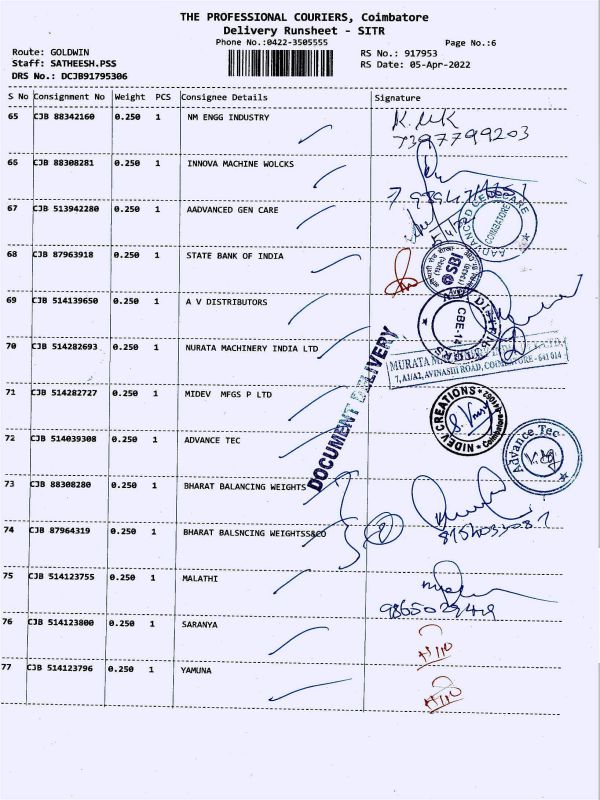 THE PROFESSIONAL COURIERS, Coimbatore
Delivery Runsheet - SITR
Phone No.:0422-3505555
Page No.:6
Route: GOLDWIN
RS No.: 917953
Staff: SATHEESH.PSS
RS Date: 05-Apr-2022
DRS No.: DCJB91795306
S No Consignment No Weight PCS Consignee Details Signature
65 CJB 88342160 0.250 1 NM ENGG INDUSTRY
7397799203
66 CJB 88308281 0.250 1 INNOVA MACHINE WOLCKS
67 CJB 513942280 0.250 1 AADVANCED GEN CARE
AADVANCED GEN CARE
COIMBATORE
68 CJB 87963918 0.250 1 STATE BANK OF INDIA
SBI
69 CJB 514139650 0.250 1 A V DISTRIBUTORS
CBE-14
70 CJB 514282693 0.250 1 NURATA MACHINERY INDIA LTD
MURATA
7, A1/A2, AVINASHI ROAD, COIMBATORE - 641 014
DOCUMENT DELIVERY
71 CJB 514282727 0.250 1 MIDEV MFGS P LTD
NIDEV CREATIONS
Coimbatore
72 CJB 514039308 0.250 1 ADVANCE TEC
Advance Tec
73 CJB 88308280 0.250 1 BHARAT BALANCING WEIGHTS
74 CJB 87964319 0.250 1 BHARAT BALSNCING WEIGHTSS&CO
75 CJB 514123755 0.250 1 MALATHI
76 CJB 514123800 0.250 1 SARANYA
77 CJB 514123796 0.250 1 YAMUNA